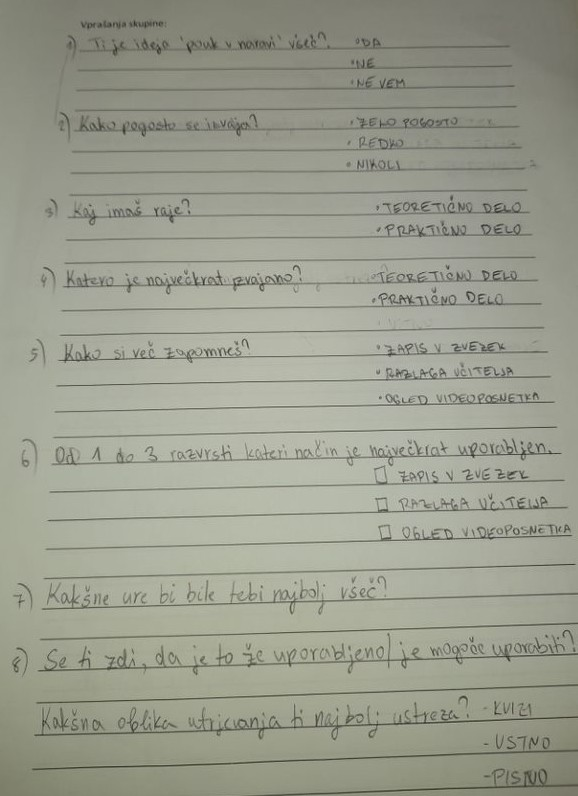 Vprašanja skupine:
1) Ti je ideja 'pouk v naravi' všeč? • DA
• NE
• NE VEM
2) Kako pogosto se izvaja? • ZELO POGOSTO
• REDKO
• NIKOLI
3) Kaj imaš raje? • TEORETIČNO DELO
• PRAKTIČNO DELO
4) Katero je največkrat izvajano? • TEORETIČNO DELO
• PRAKTIČNO DELO
5) Kako si več zapomneš? • ZAPIS V ZVEZEK
• RAZLAGA UČITELJA
• OGLED VIDEOPOSNETKA
6) Od 1 do 3 razvrsti kateri način je največkrat uporabljen.
☐ ZAPIS V ZVEZEK
☐ RAZLAGA UČITELJA
☐ OGLED VIDEOPOSNETKA
7) Kakšne ure bi bile tebi najbolj všeč?
8) Se ti zdi, da je to že uporabljeno/ je mogoče uporabiti?
Kakšna oblika utrjevanja ti najbolj ustreza? - KVIZI
- USTNO
- PISNO